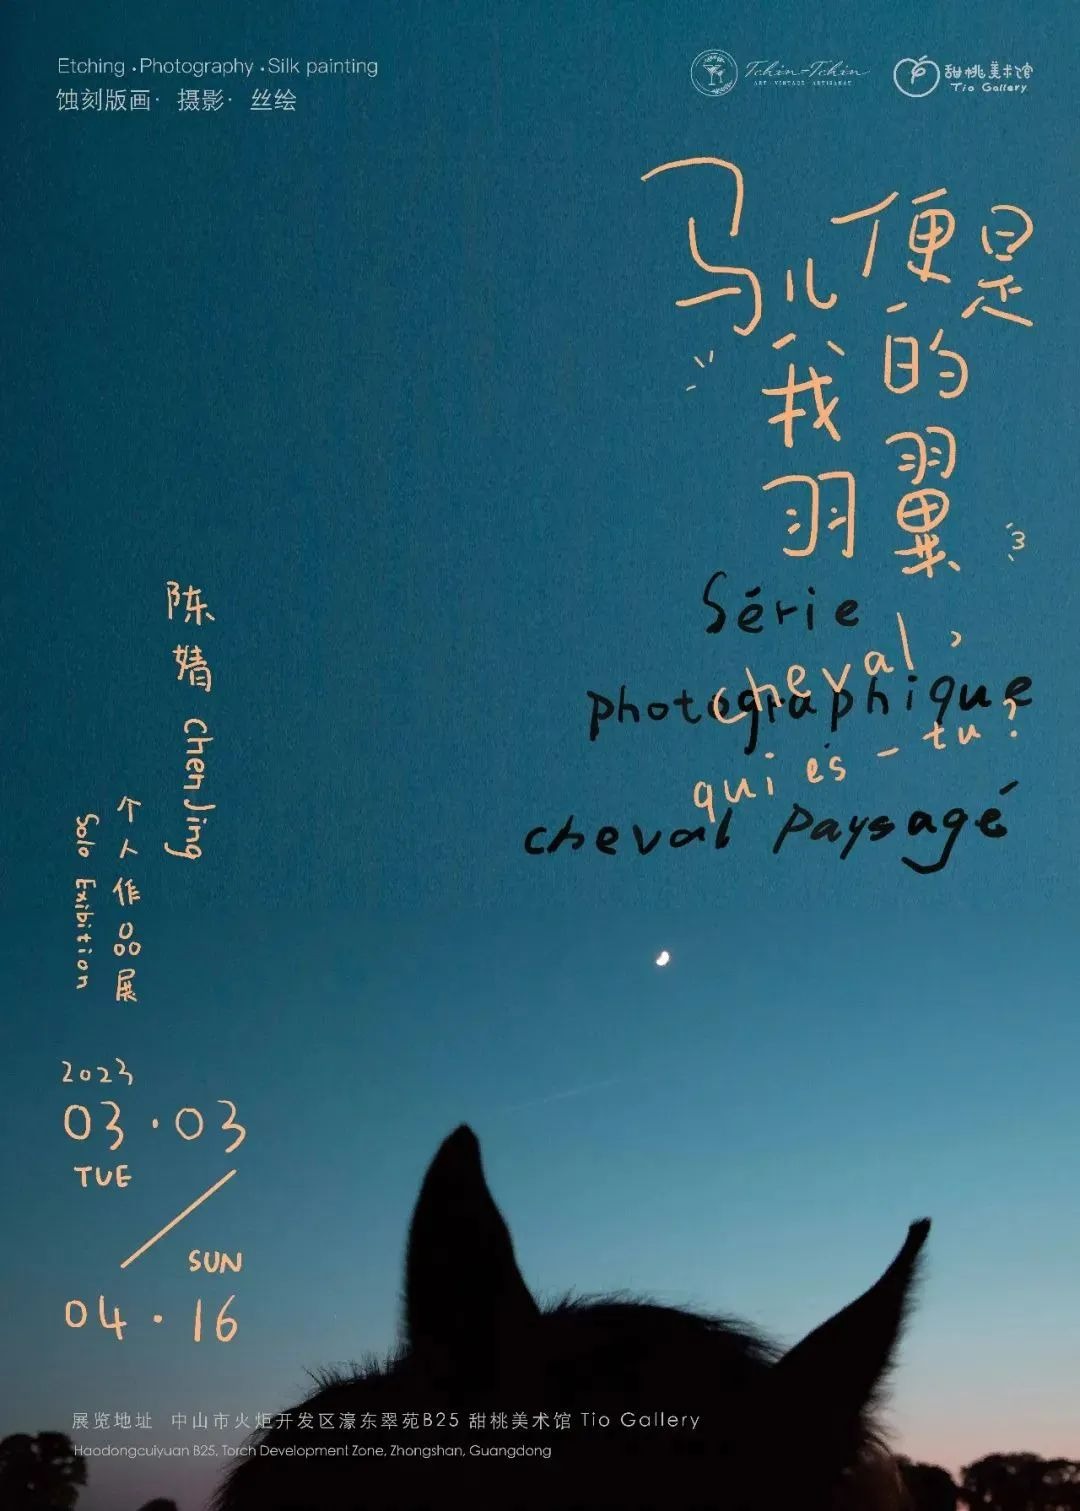 Etching .Photography .Silk painting
蚀刻版画· 摄影· 丝绘
Tchin-Tchin
ART · VINTAGE · ARTISANAT
甜桃美术馆
Tio Gallery
马儿便是
我的
羽翼
3
Série
cheval,
photographique
qui es-tu?
cheval paysagé
陈婧 ChenJing
个人作品展
Solo Exibition
2023
03·03
TUE
SUN
04·16
展览地址 中山市火炬开发区濠东翠苑B25 甜桃美术馆 Tio Gallery
Haodongcuiyuan B25, Torch Development Zone, Zhongshan, Guangdong